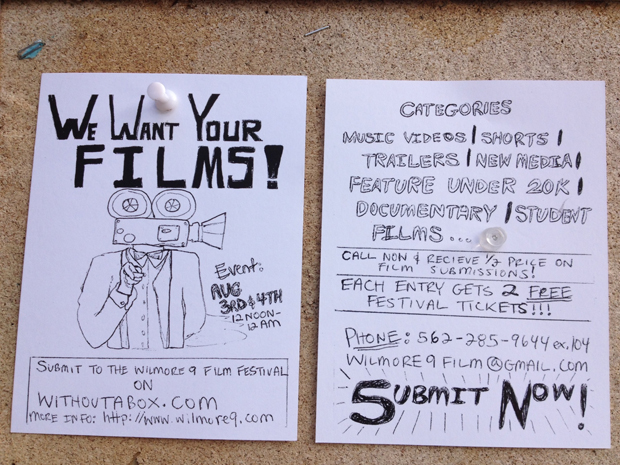 WE WANT YOUR
FILMS!
EVENT:
AUG
3RD & 4TH
12 NOON-
12 AM
SUBMIT TO THE WILMORE 9 FILM FESTIVAL
ON
WITHOUTABOX.COM
MORE INFO: http://www.wilmore9.com
CATEGORIES
MUSIC VIDEOS | SHORTS |
TRAILERS | NEW MEDIA |
FEATURE UNDER 20K |
DOCUMENTARY | STUDENT
FILMS...
CALL NOW & RECIEVE 1/2 PRICE ON
FILM SUBMISSIONS!
EACH ENTRY GETS 2 FREE
FESTIVAL TICKETS!!!
PHONE: 562-285-9644 ex.104
WILMORE9FILM@GMAIL.COM
SUBMIT NOW!